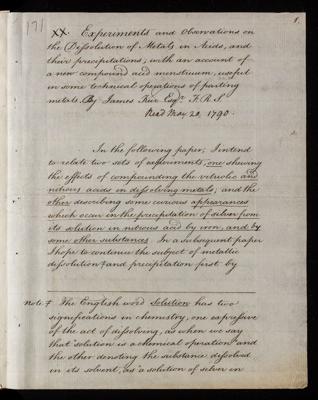 171
1.
XX. Experiments and Observations on
the Dissolution of Metals in Acids, and
their precipitations; with an account of
a new compound acid menstruum, useful
in some technical operations of parting
metals. By James Keir Esqr. F.R.S.
Read May 20, 1790.
In the following paper, I intend
to relate two sets of experiments, one shewing
the effects of compounding the vitriolic and
nitrous acids in dissolving metals; and the
other describing some curious appearances
which occur in the precipitation of silver from
its solution in nitrous acid by iron, and by
some other substances. In a subsequent paper
I hope to continue the subject of metallic
dissolution ‡ and precipitation first by
Note ‡ The English word Solution has two
significations in chemistry, one expressive
of the act of dissolving, as when we say
that "solution is a chemical operation" and
the other denoting the substance dissolved
in its solvent, as "a solution of silver in